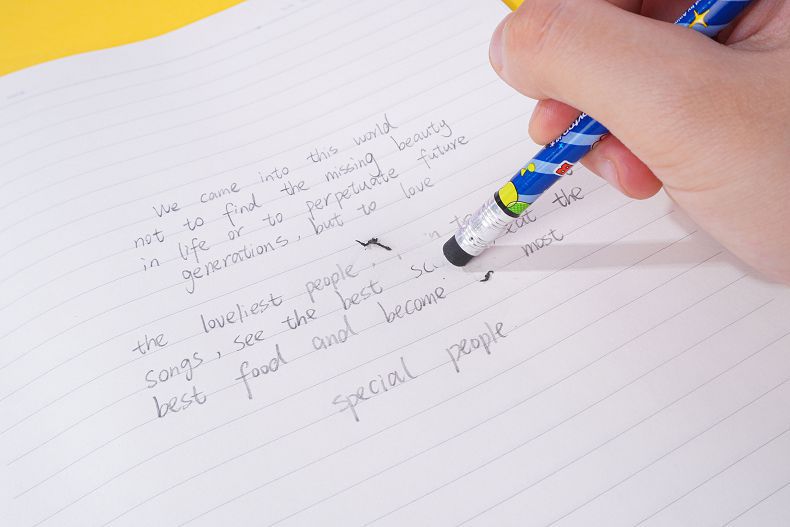 We came into this world
not to find the missing beauty
in life or to perpetuate future
generations, but to love
the loveliest people, eat the
songs, see the best
best food and become most
special people